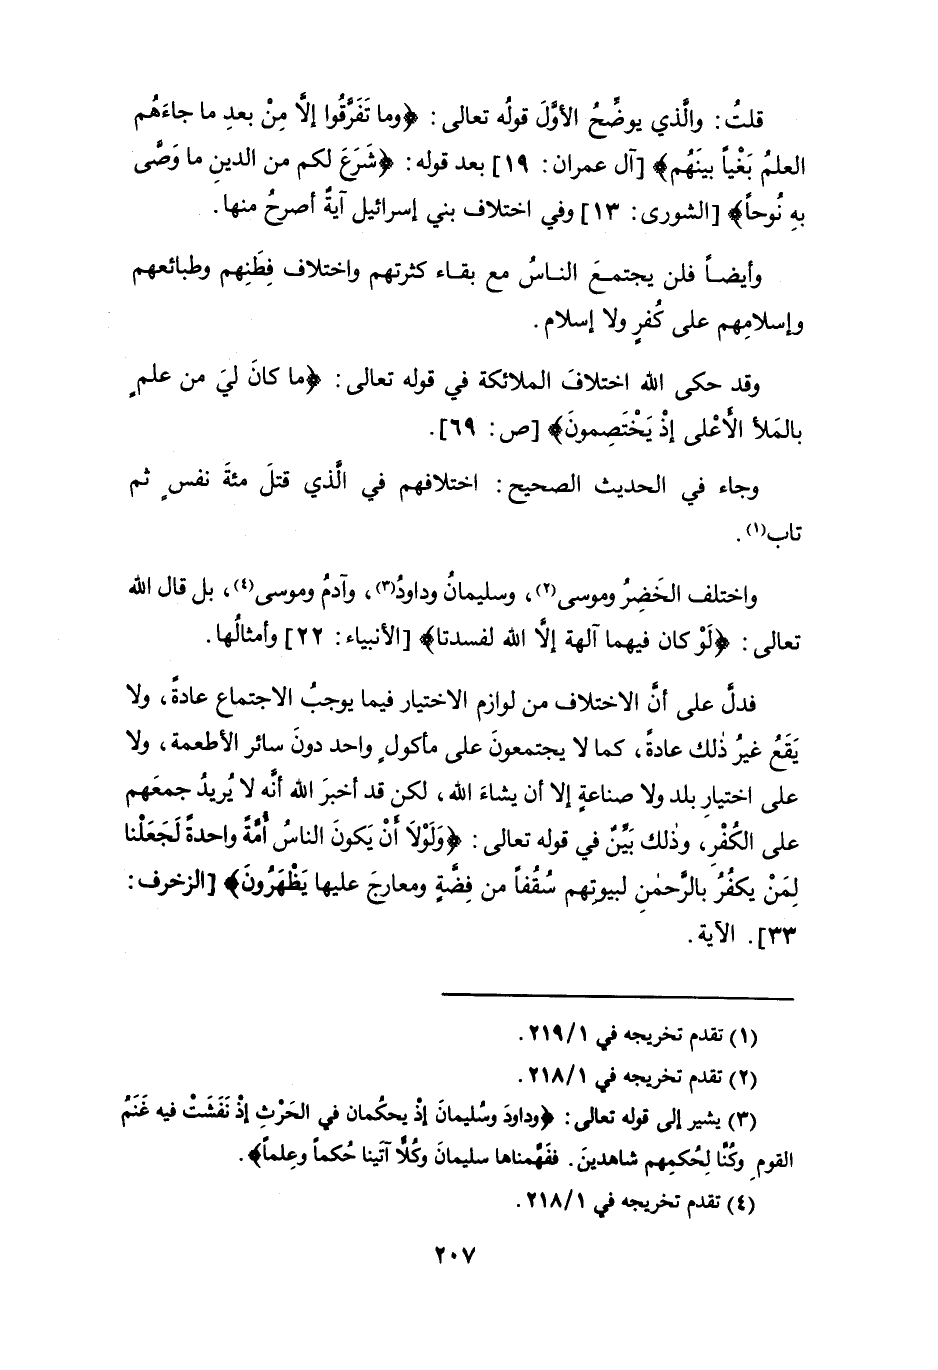 قلتُ: والَّذي يوضِّحُ الأوَّلَ قولُه تعالى: ﴿وما تَفَرَّقُوا إلَّا مِنْ بعدِ ما جاءَهُم
العلمُ بَغْياً بينَهُم﴾ [آل عمران: ١٩] بعد قوله: ﴿شَرَعَ لكم من الدينِ ما وَصَّى
بهِ نُوحاً﴾ [الشورى: ١٣] وفي اختلاف بني إسرائيل آيةٌ أصرحُ منها.
وأيضاً فلن يجتمعَ الناسُ مع بقاء كثرتهم واختلاف فِطَنِهم وطبائعهم
وإسلامِهم على كُفرٍ ولا إسلام.
وقد حكى الله اختلافَ الملائكة في قوله تعالى: ﴿ما كانَ ليَ من علمٍ
بالمَلأ الأَعْلى إذْ يَخْتَصِمونَ﴾ [ص: ٦٩].
وجاء في الحديث الصحيح: اختلافهم في الَّذي قتلَ مئةَ نفسٍ ثم
تاب(١).
واختلف الخَضِرُ وموسى(٢)، وسليمانُ وداودُ(٣)، وآدمُ وموسى(٤)، بل قال الله
تعالى: ﴿لَوْ كان فيهما آلهة إلَّا الله لفسدتا﴾ [الأنبياء: ٢٢] وأمثالُها.
فدلَّ على أنَّ الاختلاف من لوازم الاختيار فيما يوجبُ الاجتماع عادةً، ولا
يَقَعُ غيرُ ذٰلك عادةً، كما لا يجتمعونَ على مأكولٍ واحد دونَ سائر الأطعمة، ولا
على اختيارِ بلد ولا صناعةٍ إلا أن يشاءَ الله، لكن قد أخبرَ الله أنَّه لا يُريدُ جمعَهم
على الكُفْرِ، وذٰلك بَيِّنٌ في قوله تعالى: ﴿وَلَوْلاَ أَنْ يَكونَ الناسُ أُمَّةً واحدةً لَجَعَلْنا
لِمَنْ يكفُرُ بالرَّحمٰنِ لبيوتِهم سُقُفاً من فِضَّةٍ ومعارِجَ عليها يَظْهَرُونَ﴾ [الزخرف:
٣٣]. الآية.
(١) تقدم تخريجه في ٢١٩/١.
(٢) تقدم تخريجه في ٢١٨/١.
(٣) يشير إلى قوله تعالى: ﴿وداودَ وسُليمانَ إذْ يحكُمان في الحَرْثِ إذْ نَفَشَتْ فيه غَنَمُ
القومِ وكُنَّا لِحُكمِهم شاهدينَ. ففَهَّمناها سليمانَ وكُلًّا آتَينا حُكماً وعِلماً﴾.
(٤) تقدم تخريجه في ٢١٨/١.
٢٠٧